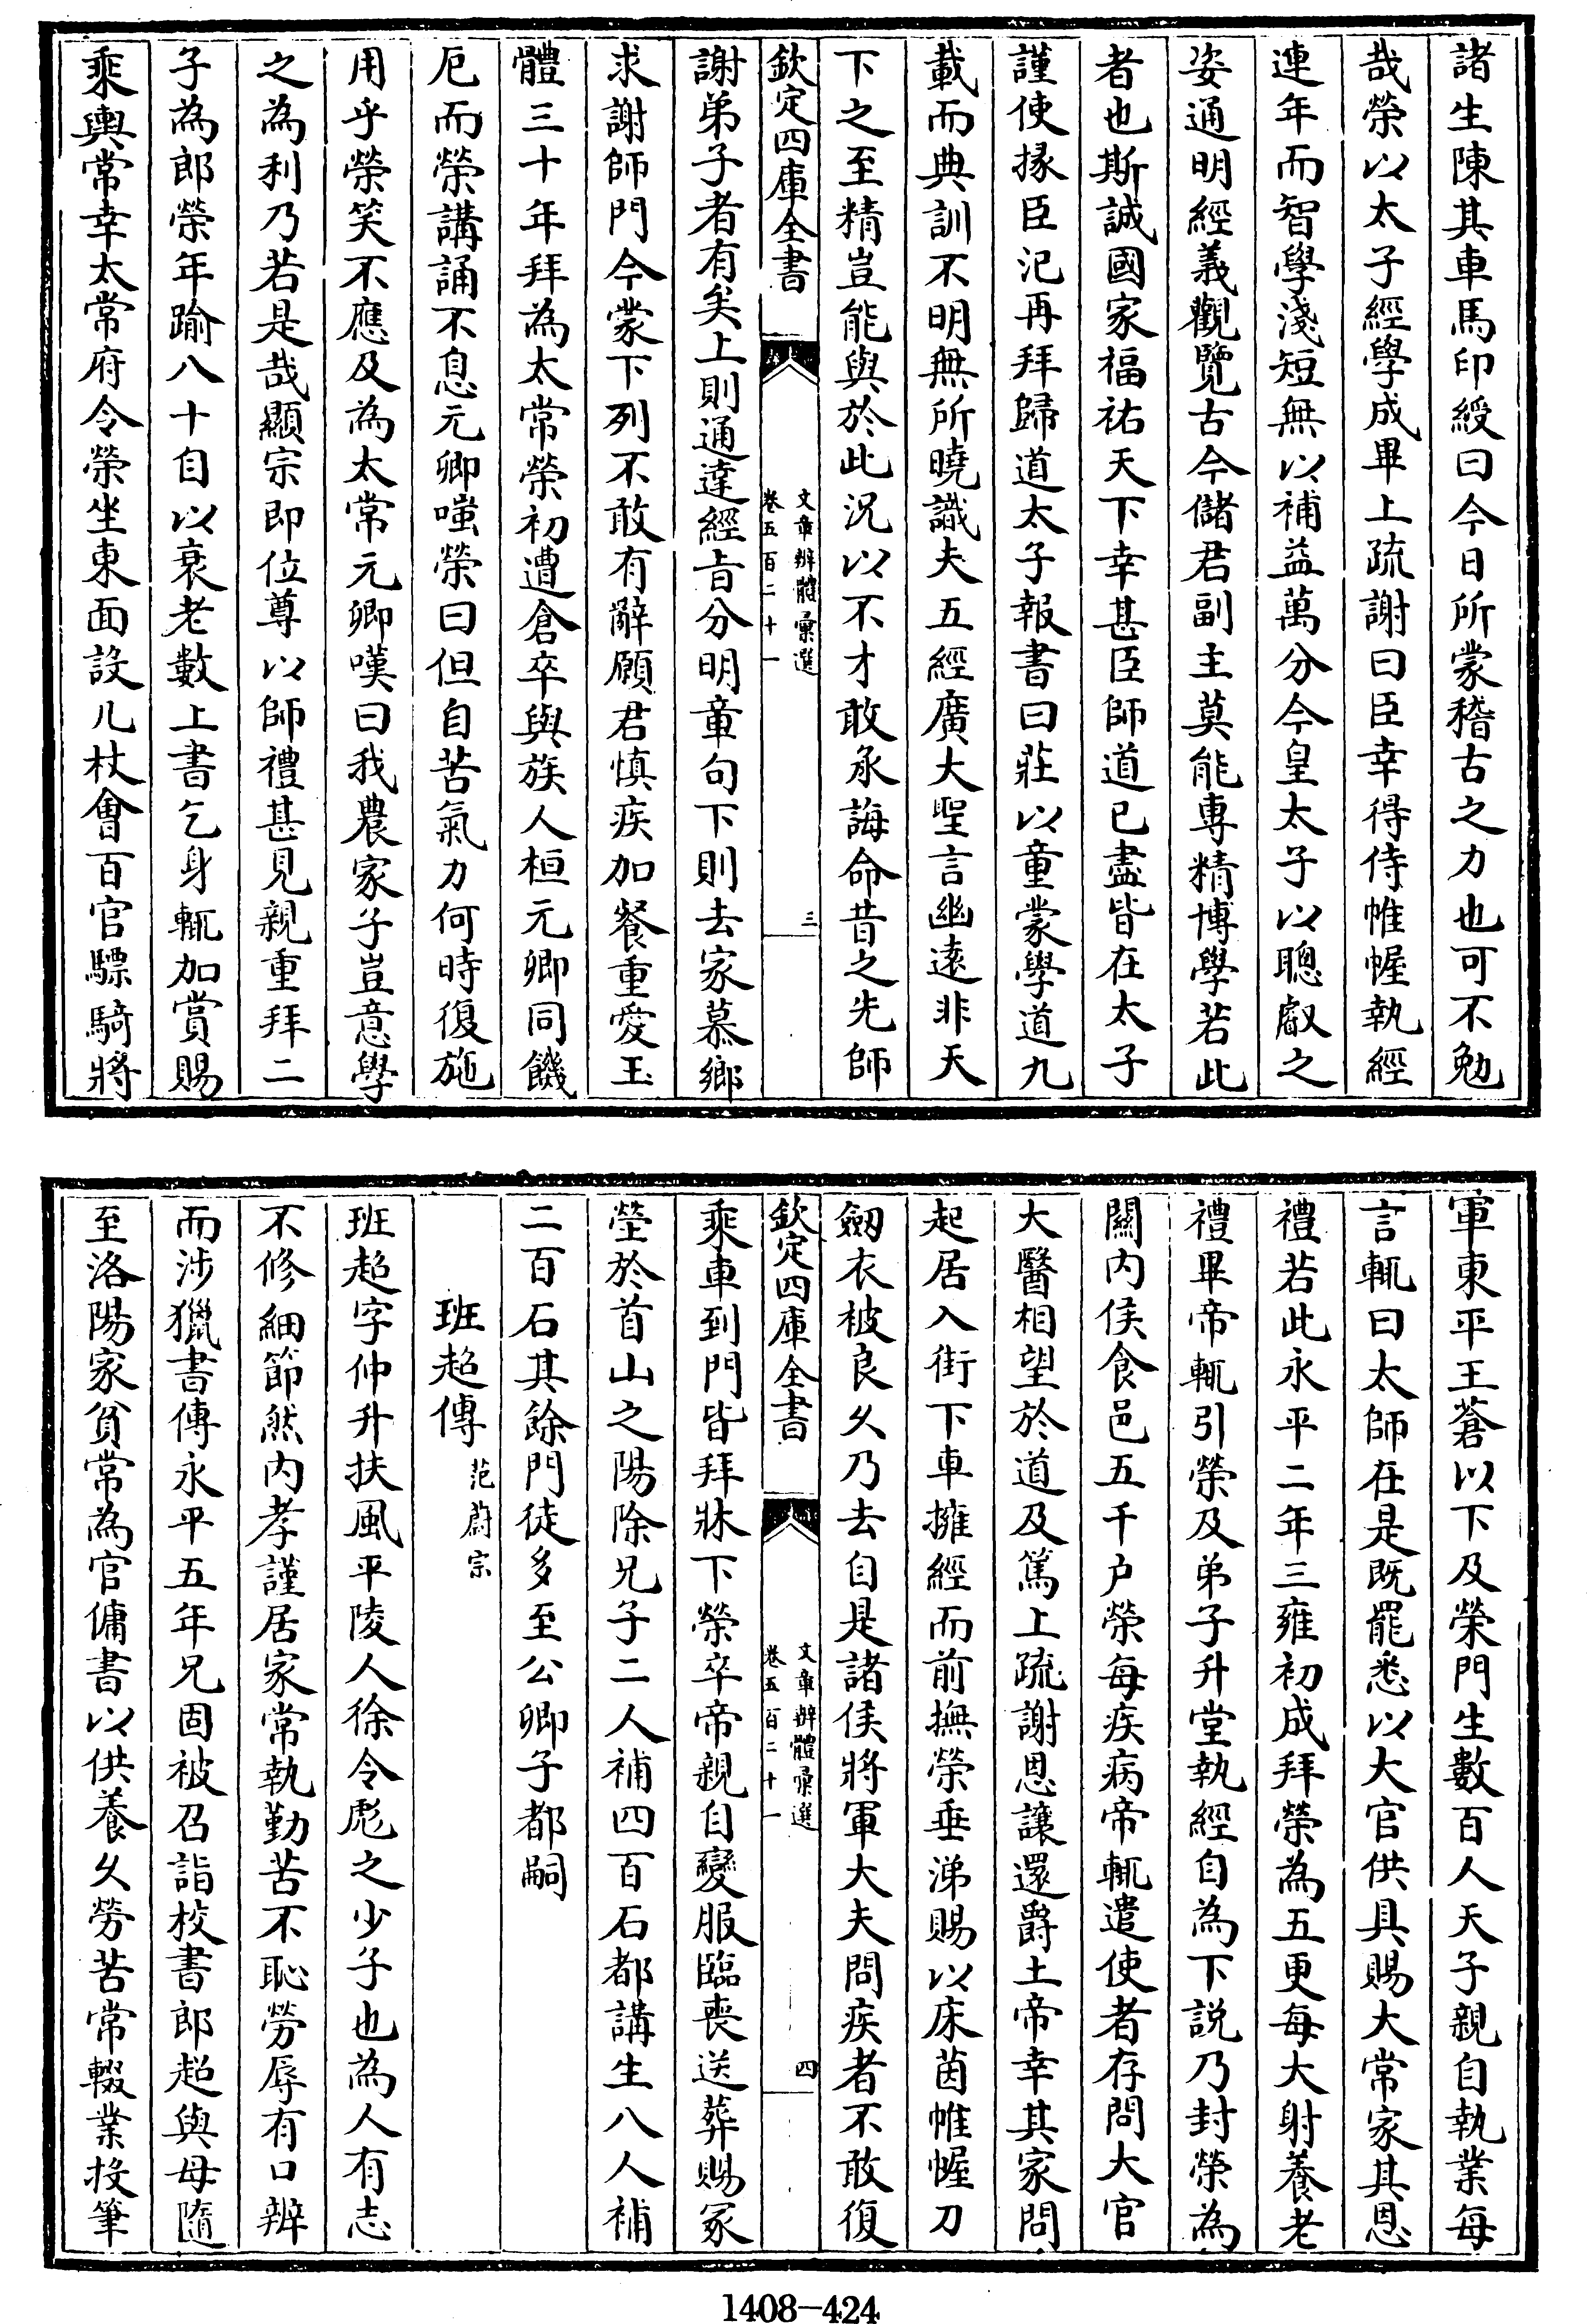 諸生陳其車馬印綬曰今日所蒙稽古之力也可不勉
哉榮以太子經學成畢上疏謝曰臣幸得侍帷幄執經
連年而智學淺短無以補益萬分今皇太子以聰叡之
姿通明經義觀覽古今儲君副主莫能專精博學若此
者也斯誠國家福祐天下幸甚臣師道已盡皆在太子
謹使掾臣汜再拜歸道太子報書曰莊以童蒙學道九
載而典訓不明無所曉識夫五經廣大聖言幽遠非天
下之至精豈能與於此况以不才敢承誨命昔之先師
欽定四庫全書
文章辨體彙選
卷五百二十一
三
謝弟子者有矣上則通達經旨分明章句下則去家慕鄉
求謝師門今蒙下列不敢有辭願君慎疾加餐重愛玉
體三十年拜為太常榮初遭倉卒與族人桓元卿同饑
厄而榮講誦不息元卿嗤榮曰但自苦氣力何時復施
用乎榮笑不應及為太常元卿嘆曰我農家子豈意學
之為利乃若是哉顯宗即位尊以師禮甚見親重拜二
子為郎榮年踰八十自以衰老數上書乞身輒加賞賜
乘輿常幸太常府令榮坐東面設几杖會百官驃騎將
軍東平王蒼以下及榮門生數百人天子親自執業每
言輒曰太師在是既罷悉以大官供具賜大常家其恩
禮若此永平二年三雍初成拜榮為五更每大射養老
禮畢帝輒引榮及弟子升堂執經自為下説乃封榮為
關内侯食邑五千户榮每疾病帝輒遣使者存問大官
大醫相望於道及篤上疏謝恩讓還爵土帝幸其家問
起居入街下車擁經而前撫榮垂涕賜以床茵帷幄刀
劒衣被良乆乃去自是諸侯將軍大夫問疾者不敢復
欽定四庫全書
文章辨體彙選
卷五百二十一
四
乘車到門皆拜牀下榮卒帝親自變服臨喪送葬賜冢
塋於首山之陽除兄子二人補四百石都講生八人補
二百石其餘門徒多至公卿子都嗣
班超傳 范蔚宗
班超字仲升扶風平陵人徐令彪之少子也為人有志
不修細節然内孝謹居家常執勤苦不恥勞辱有口辨
而涉獵書傳永平五年兄固被召詣校書郎超與母隨
至洛陽家貧常為官傭書以供養乆勞苦常輟業投筆
1408—424